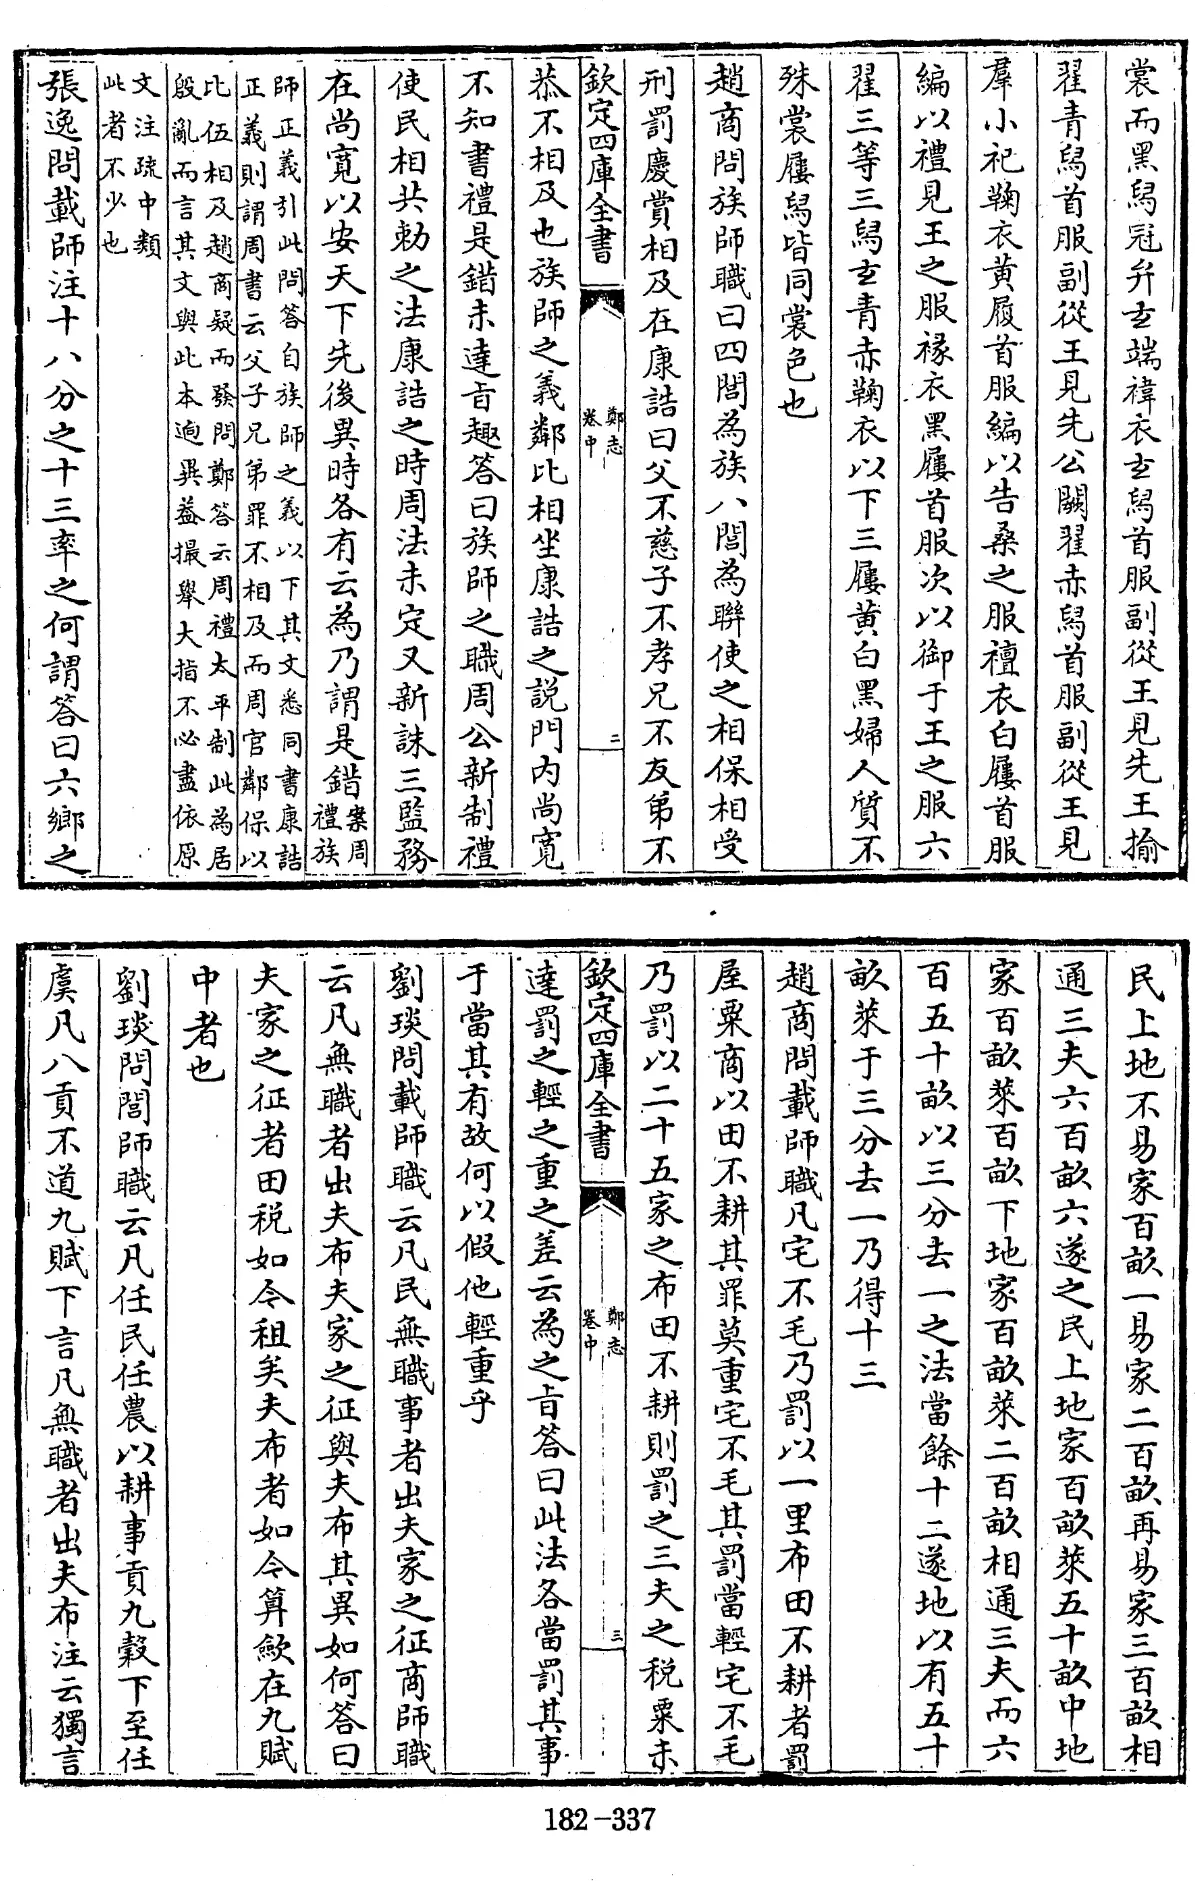 裳而黑舄冠弁玄端褘衣玄舄首服副從王見先王揄
翟青舄首服副從王見先公闕翟赤舄首服副從王見
羣小祀鞠衣黄履首服編以告桑之服襢衣白屨首服
編以禮見王之服褖衣黑屨首服次以御于王之服六
翟三等三舄玄青赤鞠衣以下三屨黄白黑婦人質不
殊裳屨舄皆同裳色也
趙商問族師職曰四閭為族八閭為聯使之相保相受
刑罰慶賞相及在康誥曰父不慈子不孝兄不友弟不
欽定四庫全書
鄭志
卷中
二
恭不相及也族師之義鄰比相坐康誥之説門内尚寛
不知書禮是錯未達㫖趣答曰族師之職周公新制禮
使民相共勅之法康誥之時周法未定又新誅三監務
在尚寛以安天下先後異時各有云為乃謂是錯
案周
禮族
師正義引此問答自族師之義以下其文悉同書康誥
正義則謂周書云父子兄弟罪不相及而周官鄰保以
比伍相及趙商疑而發問鄭答云周禮太平制此為居
殷亂而言其文與此本逈異葢撮舉大指不必盡依原
文注疏中類
此者不少也
張逸問載師注十八分之十三率之何謂答曰六鄉之
民上地不易家百畝一易家二百畝再易家三百畝相
通三夫六百畝六遂之民上地家百畝萊五十畝中地
家百畝萊百畝下地家百畝萊二百畝相通三夫而六
百五十畝以三分去一之法當餘十二遂地以有五十
畝萊于三分去一乃得十三
趙商問載師職凡宅不毛乃罰以一里布田不耕者罰
屋粟商以田不耕其罪莫重宅不毛其罰當輕宅不毛
乃罰以二十五家之布田不耕則罰之三夫之税粟未
欽定四庫全書
鄭志
卷中
三
達罰之輕之重之差云為之㫖答曰此法各當罰其事
于當其有故何以假他輕重乎
劉琰問載師職云凡民無職事者出夫家之征商師職
云凡無職者出夫布夫家之征與夫布其異如何答曰
夫家之征者田税如今租矣夫布者如今算歛在九賦
中者也
劉琰問閭師職云凡任民任農以耕事貢九穀下至任
虞凡八貢不道九賦下言凡無職者出夫布注云獨言
182-337